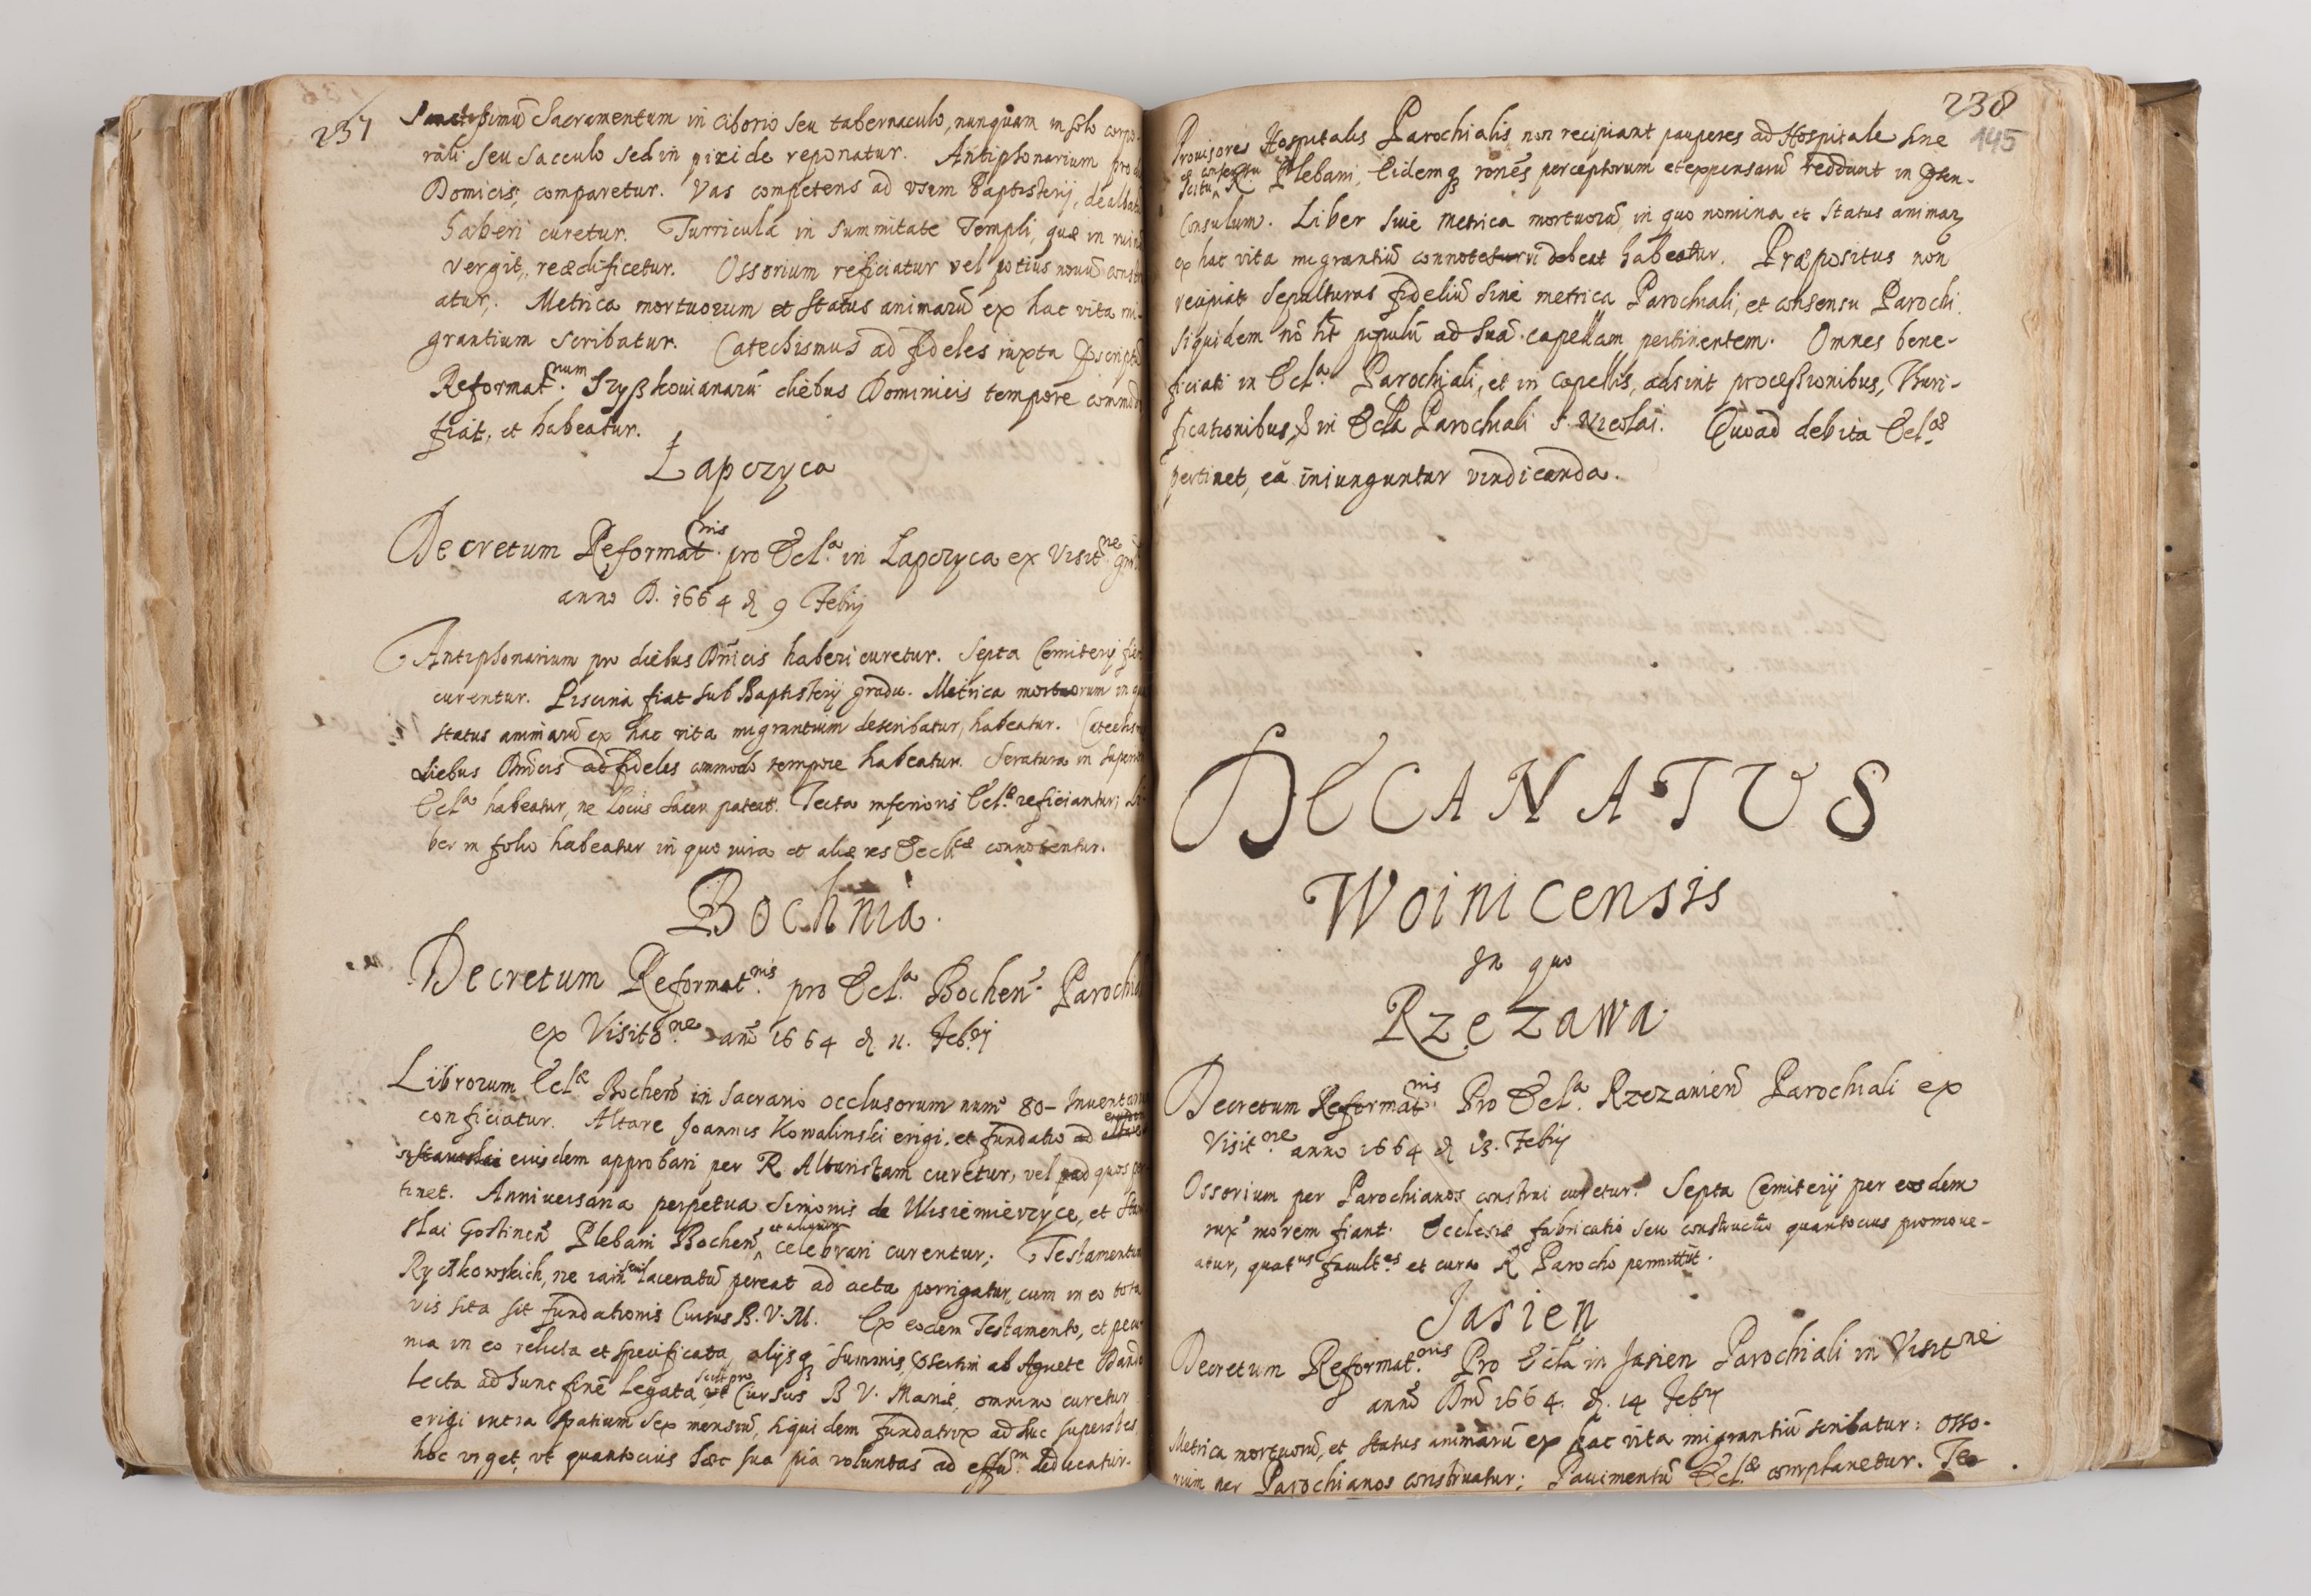 237
Sanctissimũ Sacramentum in Ciborio seu tabernaculo, nunquam in solo corpo-
rali seu sacculo sed in pixide reponatur. Antiphonarium pro
Domicis, comparetur. Vas competens ad vsum Baptisterij, dealbata
haberi curetur. Turricula in summitate Templi, quæ in ruinã
vergit, reædificetur. Ossorium reficiatur vel potius nouũ const
atur. Metrica mortuorum et status animarũ ex hac vita mi-
grantium scribatur. Catechismus ad fideles iuxta
Reformat.num Szyszkouianarũ diebus Dominicis tempore commodo
fiat, et habeatur.
Łapczyca
Decretum Reformat.nis pro Ecl.a in Łapczyca ex Visit.ne
anno D. 1664 d. 9 Febrij
Antiphonarium pro diebus Dñicis haberi curetur. Septa Cemiterij
curentur. Piscina fiat sub Baptisterij gradu. Metrica mortuorum in
status animarũ ex hac vita migrantium describatur, habeatur. Catechis
diebus Dñicis ad fideles commodo tempore habeatur. Seratura in
Ecl.a habeatur, ne locus sacer pateat. Tecta inferioris Ecl.æ reficiantur; Li
ber in folio habeatur in quo iura et aliæ res Eccl.æ connotentur.
Bochnia.
Decretum Reformat.nis pro Ecl.a Bochen. Parochia
ex Visitõ.ne anõ 1664 d. 11. Feb.rij
Librorum Ecl.æ Bochen̄ in Sacrario occlusorum num̊ 80– Inuentar
conficiatur. Altare Joannis Kowalinski erigi, et fundatio ad
eiusdem approbari per R. Altaristam curetur, vel ad quos per
tinet. Anniuersaria perpetua Simonis de Wisiemierzyce, et Stani
slai Gostinen̄ Plebani Bochen̄ et aliorum celebrari curentur; Testamentum
Ryczkowskich, ne iam laceratũ pereat ad acta porrigatur, cum in eo tota
vis sita sit fundationis Cursus B. V. M. Ex eodem Testamento, et pecu
nia in eo relicta et specificata, alijsq; summis, ab Agnete
lecta ad hunc finẽ legata Cursus B V. Mariæ, omnino curetur
erigi intra spatium sex mensiũ, siquidem fundatrix adhuc superstes,
hoc vrget, vt quantocius hæc sua pia voluntas ad effũ.m deducatur.
238
145
Prouisores Hospitalis Parochialis non recipiant pauperes ad Hospitale sine
scitu et consensu R. Plebani, Eidemq; rones perceptorum et expensarũ reddant in
Consulum. Liber siue metrica mortuorũ, in quo nomina et status animaꝝ
ex hac vita migrantiũ debeat Præpositus non
recipiat Sepulturas fideliũ sine metrica Parochiali, et consensu Parochi.
siquidem nõ populũ ad suã capellam pertinentem. Omnes bene-
ficiati in Ecl.a Parochiali, et in capellis, adsint processionibus, Thuri-
ficationibus, in Ecla Parochiali S. Nicolai. Quoad debita Ecl.æ
pertinet, ea iniunguntur vindicanda.
DECANATUS
Woinicensis
In quo
Rzezawa
Decretum Reformat.nis Pro Ecl.a Rzezauien̄ Parochiali ex
Visit.ne anno 1664 d. 13. Febrij
Ossorium per Parochianos construi curetur. Septa Cemiterij per eosdem
iux. morem fiant. Ecclesiæ fabricatio seu constructio quantocius promoue-
atur, quat.us facult.es et cura R Parocho permittũt.
Jasien
Decretum Reformat.nis Pro Ecla in Jasien Parochiali in Visit.ne
anno Dni 1664. d. 14 Feb.rij
Metrica mortuorũ, et status animarũ ex hac vita migrantiũ scribatur: Osso-
rium per Parochianos construatur; Pauimentũ Ecl.æ complanetur. Te